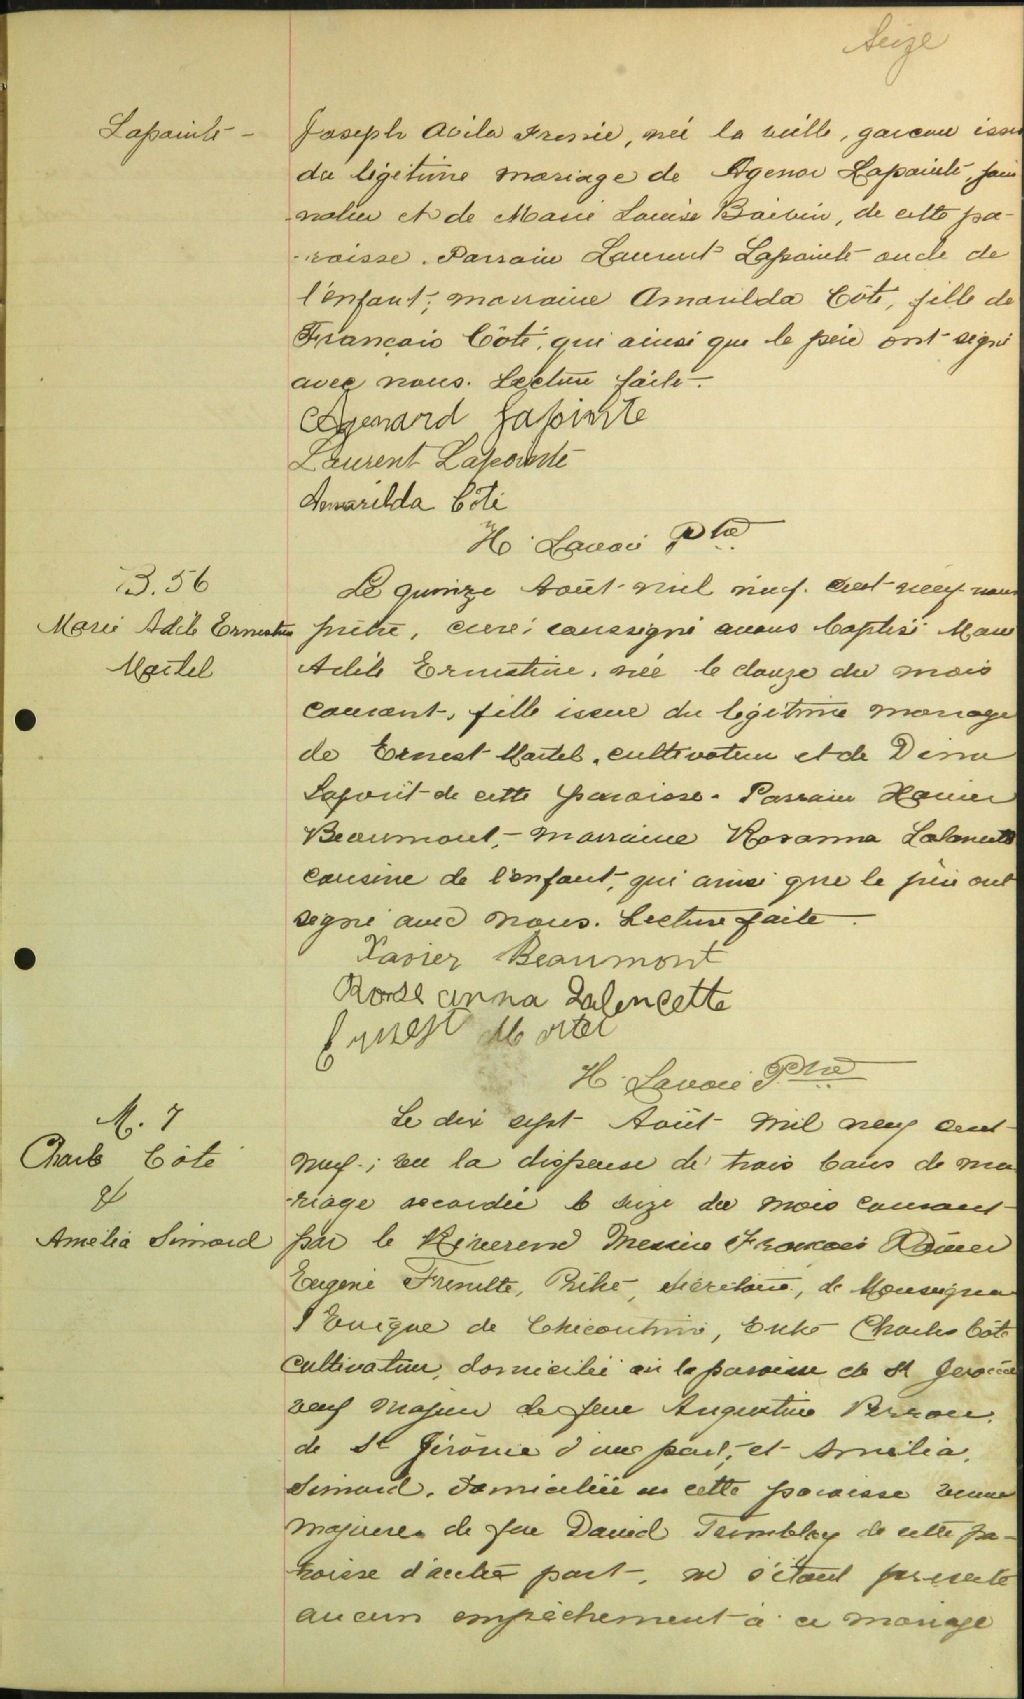 Seize
Lapointe -
Joseph Avila Frenie, né la veille, garcon issu
du légitime mariage de Agenor Lapointe, jour
nalier et de Marie Louise Boivin, de cette pa-
-roisse. Parrain Laurent Lapointe oncle de
l'enfant; marraine Amarilda Côté, fille de
François Côté, qui ainsi que le père ont signé
avec nous. Lecture faite.
Agenard Lapinte
Laurent Lapointe
Amarilda Côté
H. Lavoie Ptre
B. 56
Marie Adèle Ernestine
Martel
Le quinze Août mil neuf cent neuf nous
prêtre, curé soussigné avons baptisé Marie
Adèle Ernestine, née le douze du mois
courant, fille issue du légitime mariage
de Ernest Martel, cultivateur et de Dina
de cette paroisse. Parrain Xavier
Beaumont, marraine Rosanna Lalancette
cousine de l'enfant, qui ainsi que le père ont
signé avec nous. Lecture faite.
Xavier Beaumont
Rose anna Lalencette
Ernest Martel
H. Lavoie Ptre
M. 7
Charles Côté
&
Amelia Simard
Le dix sept Août mil neuf cent
neuf; vu la dispense de trois bans de ma
-riage accordée le seize du mois courant
par le Révérend Messire François
Eugène Frenette, Prêtre, secrétaire, de Monseigneur
l'Evêque de Chicoutimi, Entre Charles Côté
cultivateur, domicilié en la paroisse de St Jérôme
veuf majeur de feue Augustine Perron,
de St Jérôme d'une part, et Amélia
Simard, domiciliée en cette paroisse veuve
majeure de feu David Tremblay de cette pa-
-roisse d'autre part, ne s'étant présenté
aucun empêchement à ce mariage